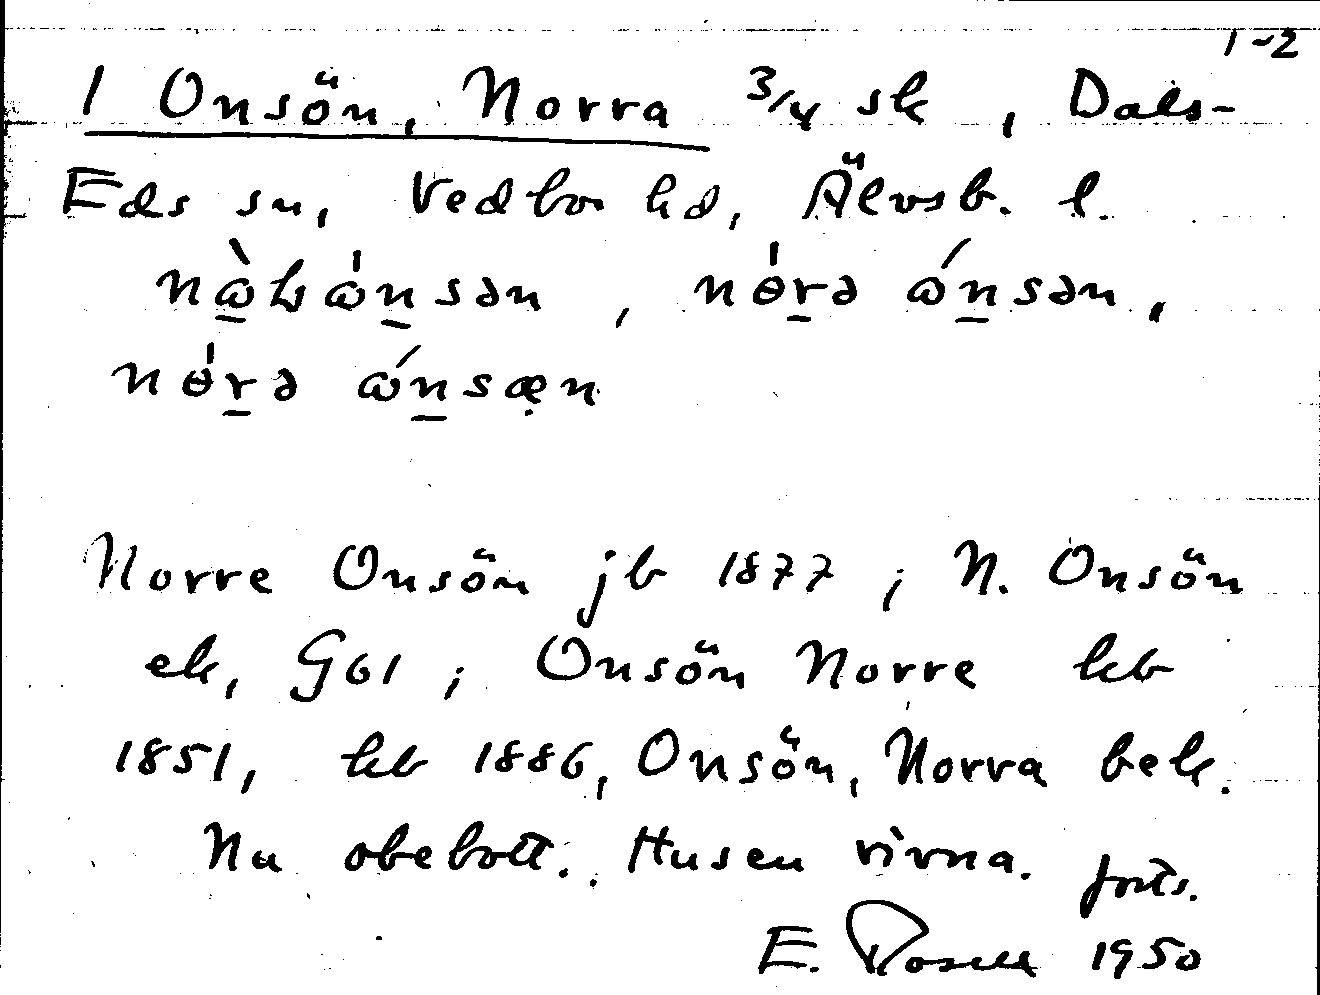 1-2
1 Onsön, Norra 3/4 sk, Dals-
Eds sn, Vedbo hd, Älvsb. l.
nɵ́rə ɷ́nsən,
nɵ́rə ɷ́nsæn
Norre Onsön jb 1877; N. Onsön
ek, G61; Onsön Norre kb
1851, kb 1886, Onsön, Norra bek.
Nu obebott. Husen rivna. forts.
E. Rosell 1950